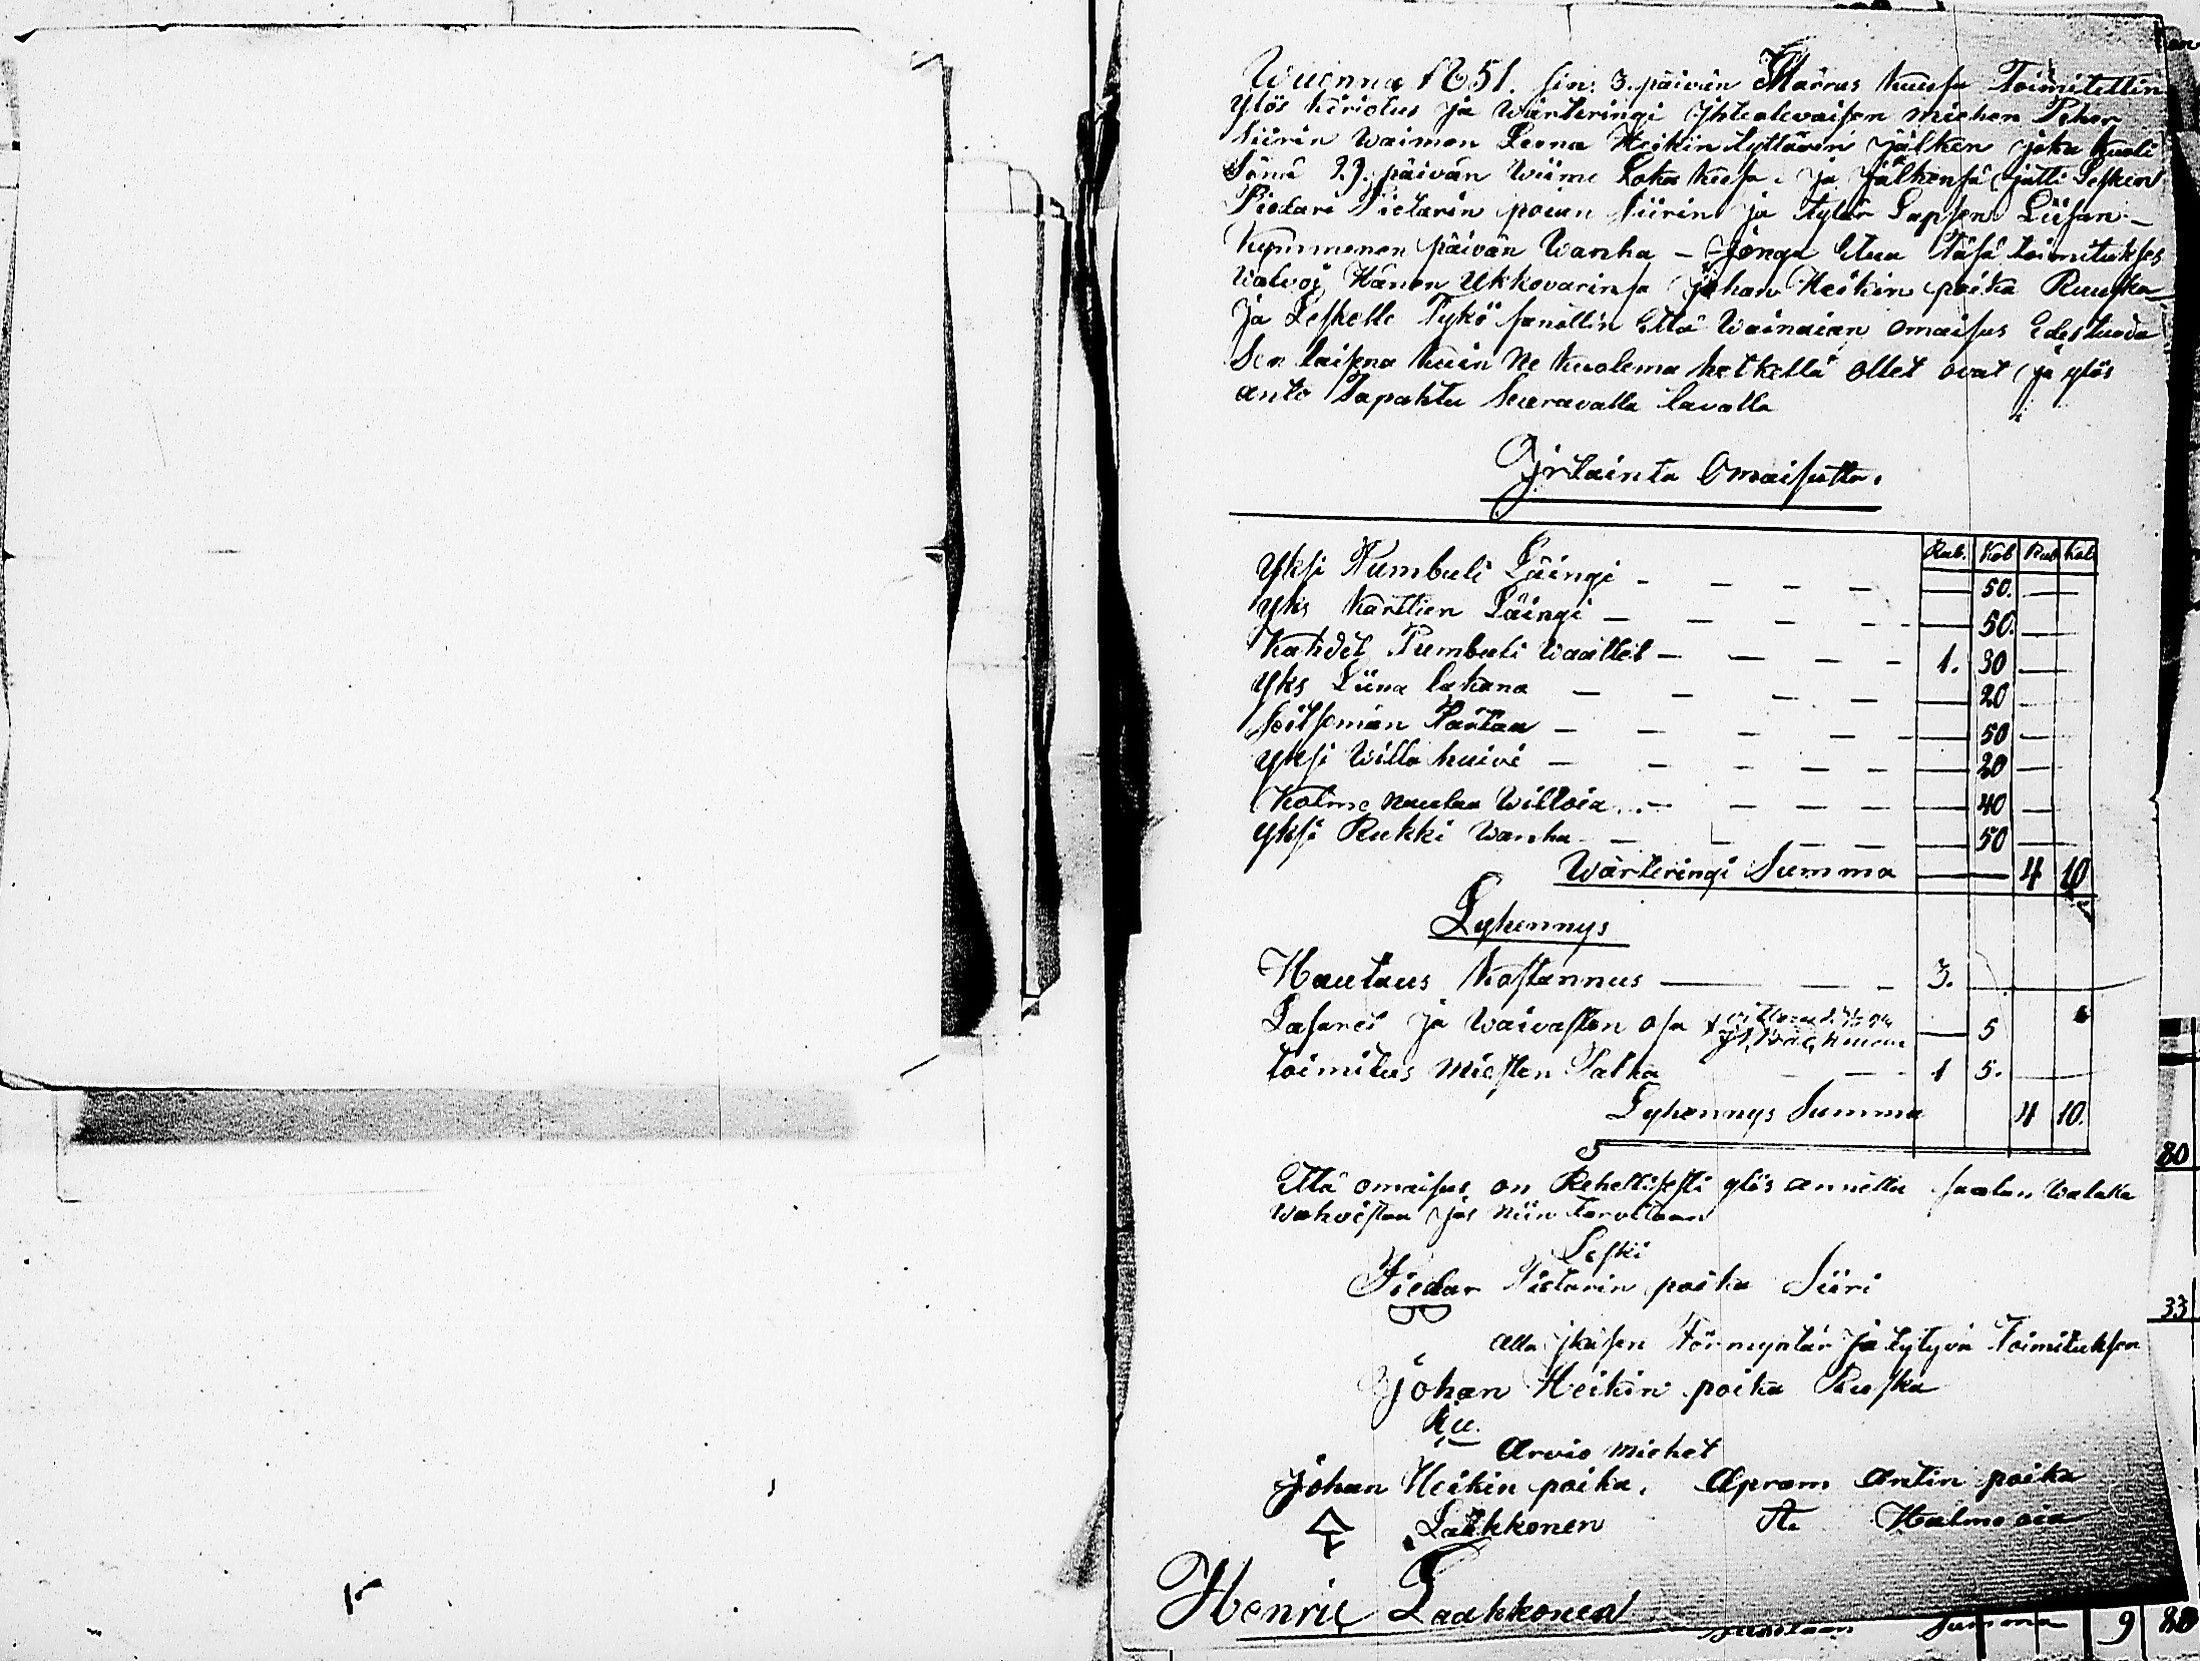 Wuonna 1851. sin: 3. päivän Marras kuusa Toimitettin
ylös kirioitus ja Wärteringi ithealevaisen miehen Pehr
Siirin Waimon Leena Heikin tyttärin jälken joka kuoli
Sinä 27. päivän Wiime Loka kuusa. ja jälkensä jätti Lesken
Piedari Pietarin poian Siirin ja tytär Lapsen Liisan –
Kymmenen päivän Wanha – jonga Etua Täsä toimitukses
Walvoj Hänen Ukkovarinsa Johan Heikin poika Ruuska
Ja Leskelle Tykö sanottin Että Wainaian omaisus Edestuoda
Sen laisena kuin Ne kuolema hetkellä ollet ovat ja ylös
anto Tapahtu Seuravalla tavalla
Irtainta Omaisutta.
Rub. Kop Rub Kop
Yksi Kumbuli Läingi – – – – — 50. —
Yks Karttien Läingi – – – – — 50. —
Kahdet Pumbuli Waattet – – – – 1. 30 —
Yks Liina lakana – – – – — 20 —
Seitsemän Paitaa – – – – — 50 —
Yksi Willa huivi – – – – — 20 —
Kolme naulaa Willoia – – – – — 40 —
Yksi Rukki Wanha – – – – — 50 —
Wärteringi Summa — 4 10
Lyhennys
Hautaus Kostannus — – – 3. —
Lasaret ja Waivasten osa — 5
toimitus Miesten Palka – – – 1 5. —
Lyhennys Summa 4 10.
80
Että omaisus on Rehellisesti ylös annettu saatan Walalla
Wahvistaa jos Niin tarvitaan
Leski
Piedar Pietarin poika Siiri
33
alla ikäisen Förmyntär ja tytyvä toimituksen
Johan Heikin poika Ruska
Arvio miehet
Johan Heikin poika. Apram Antin poika
Laukkonen Halmo oia
Henric Laakkonen
Summa 9 80